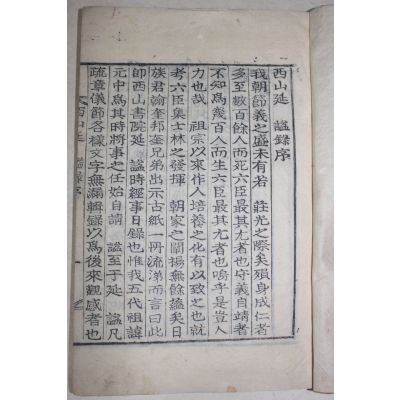 西山延 諡錄序
我朝節義之盛未有若 莊光之際矣殞身成仁者
多至數百餘人而死六臣最其尤者也守義自靖者
不知爲幾百人而生六臣最其尤者也嗚乎是豈人
力也哉 祖宗以來作人培養之化有以致之也就
考六臣集士林之發揮 朝家之闡揚無餘蘊矣日
族君翰奎邦奎兄弟出示古紙一冊流涕而言曰此
師西山書院延 諡時經事日錄也惟我五代祖諱
元中爲其時將事之任始自請 諡至于延 諡凡
疏章儀節各樣文字無漏輯錄以爲後來觀感者也
西山延 諡錄序